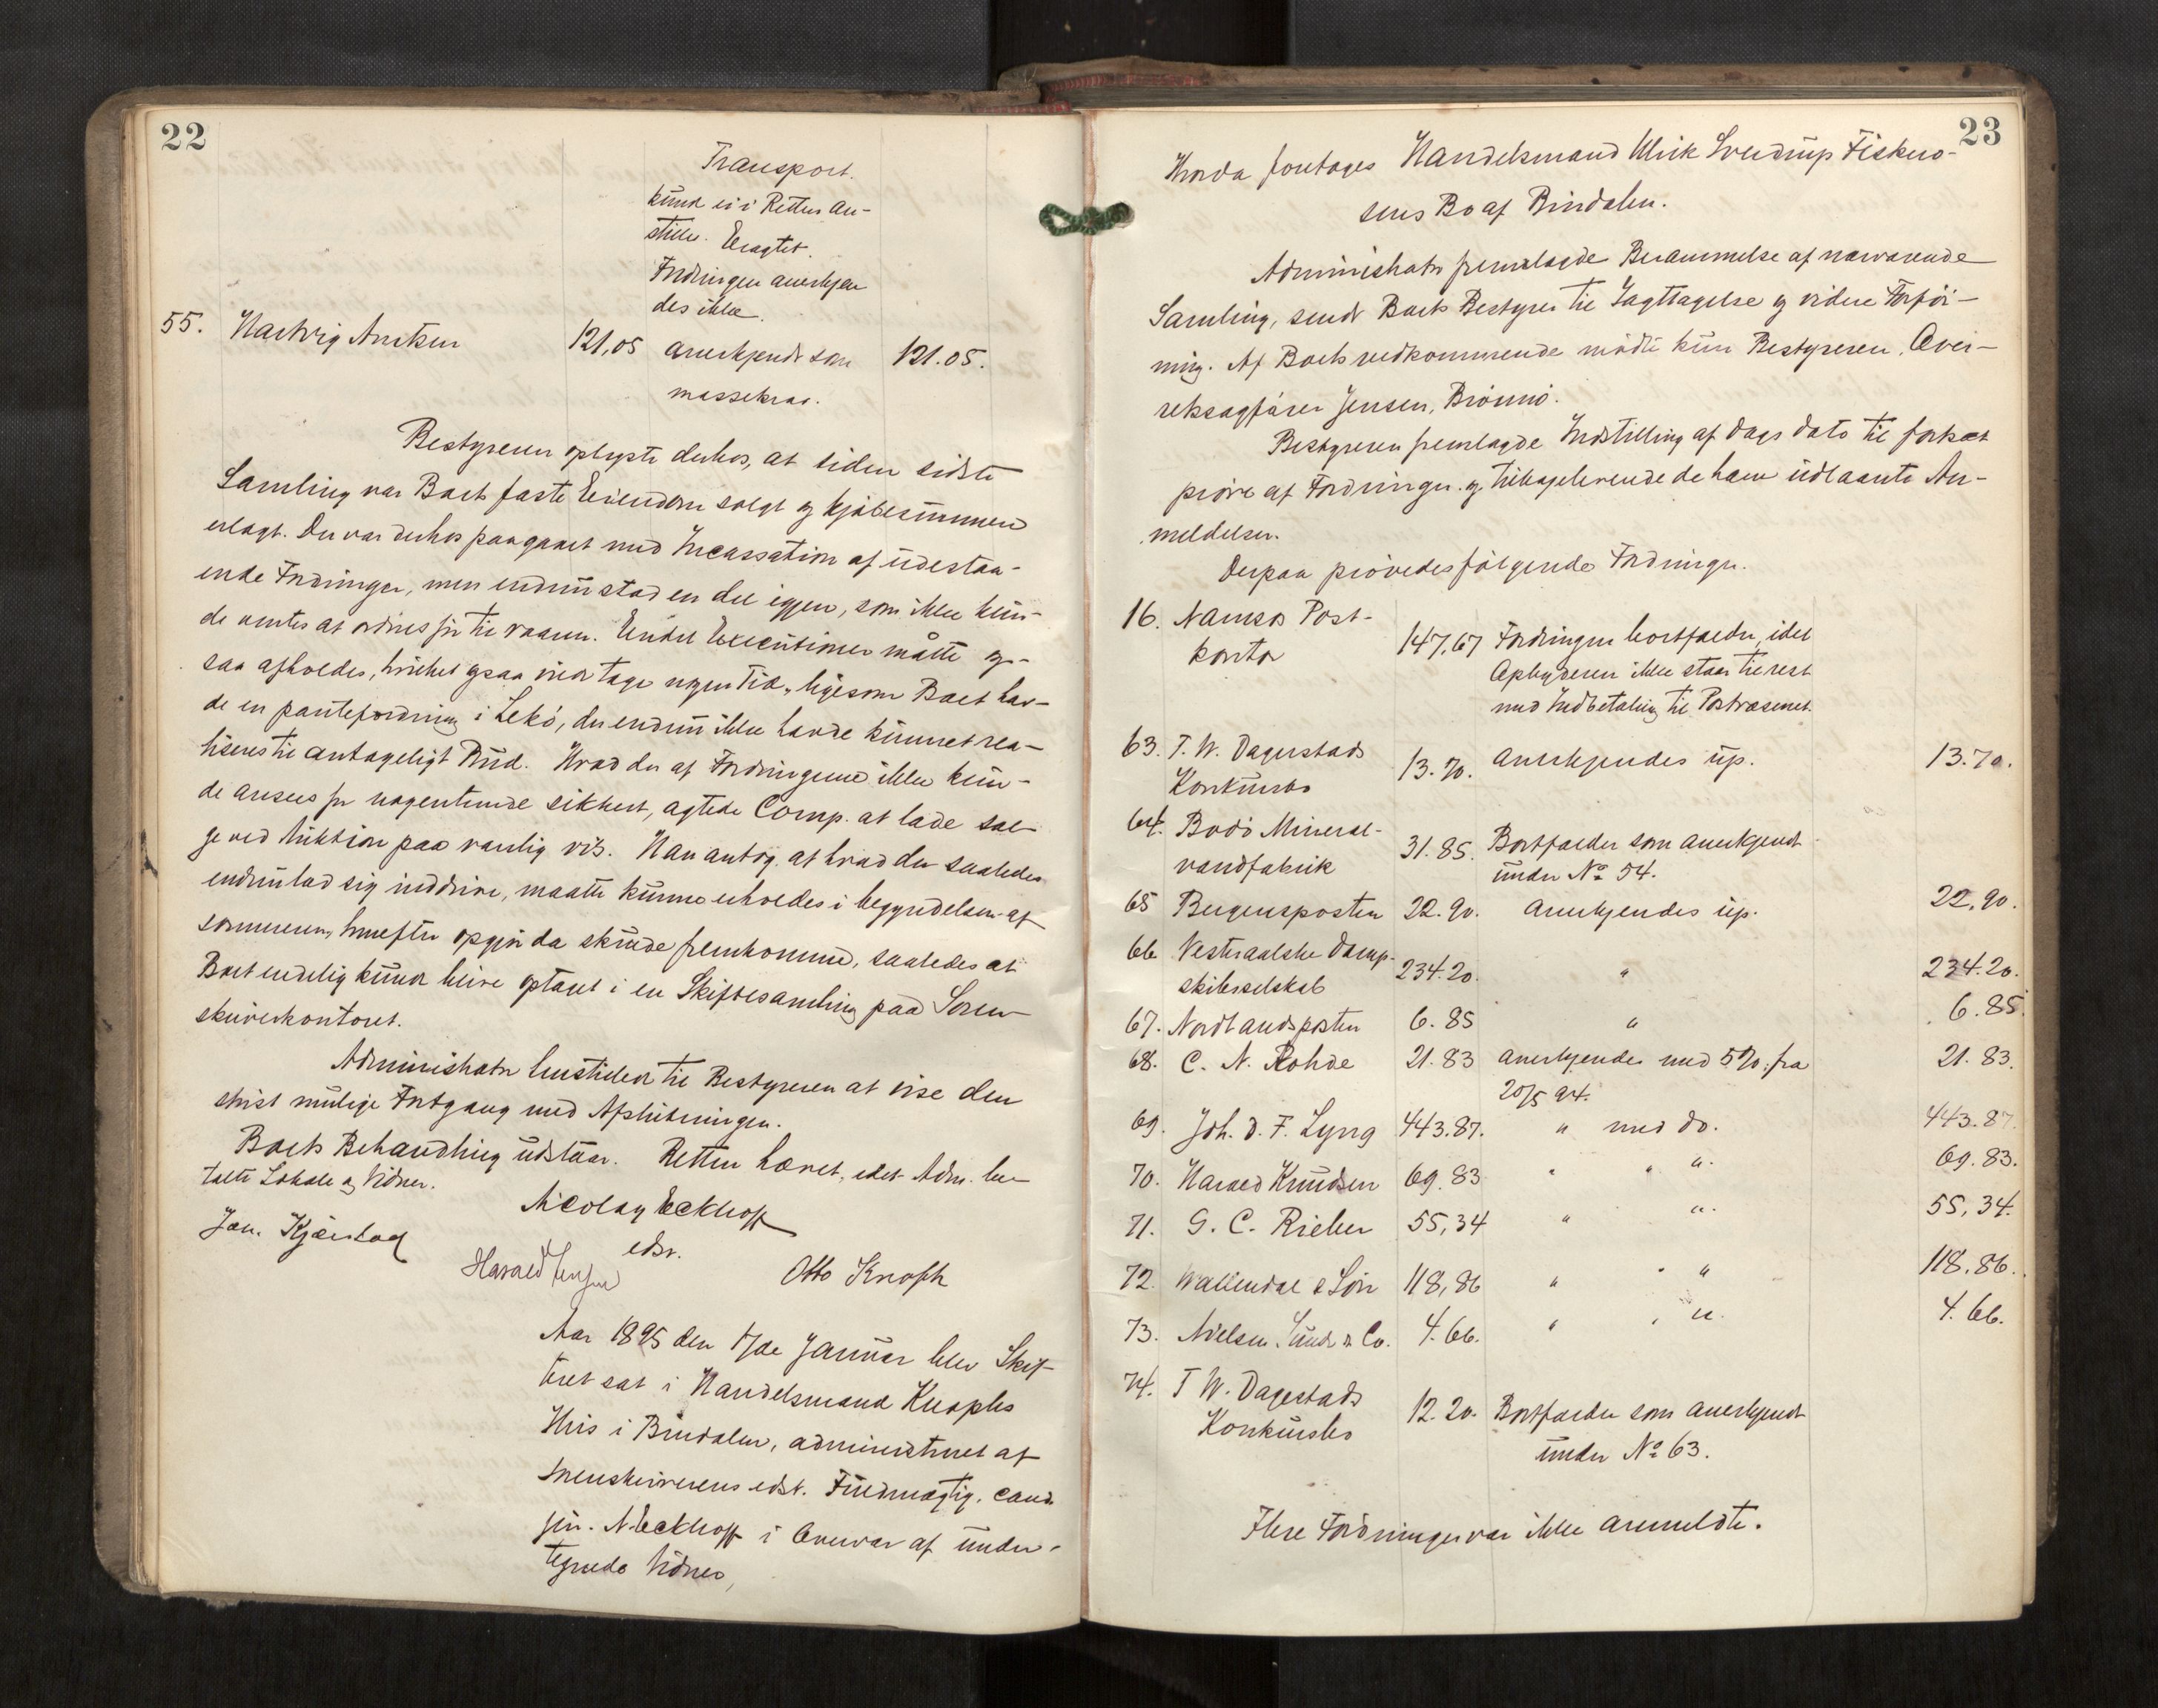 22
Transport.
kunde ei i Retten an-
stilles. Eragtet.
Fordringen anerkjen
des ikke.
55. Hartvig Arntsen 121,05 anerkjendt som 121.05.
massekrav.
Bestyreren oplyste derhos, at siden sidste
Samling var Boets faste Eiendom solgt og kjøbesummen
erlagt. Der var derhos paagaaet med Incassation af udestaa-
ende Fordringer, men endnu stod en del igjen, som ikke kun-
de ventes at ordnes før til vaaren. Endel Executioner måtte og-
saa afholdes, hvilket ogsaa vilde tage nogen Tid, ligesom Boet hav-
de en pantefordring i Lekø, der endnu ikke havde kunnet rea-
liseres til antageligt Bud. Hvad der af Fordringerne ikke kun-
de ansees for nogenlunde sikkert, agtede Comp. at lade sæl-
ge ved Auktion paa vanlig vis. Han antog, at hvad der saaledes
endnu lod sig inddrive, maatte kunne erholdes i begyndelsen af
sommeren, hvorefter opgjør da skulde fremkomme, saaledes at
Boet endelig kunde blive optaget i en Skiftesamling paa Soren-
skriverkontoret.
Administrator henstillede til Bestyreren at vise den
størst mulige Fortgang med Afslutningen.
Boets Behandling udstaar. Retten hævet, idet Adm. be-
talte Lokale og Vidner.
Nicolay Eckhoff
edsv.
Jon. Kjærstad
Harald Jensen
Otto Knoph
Aar 1895 den 17de Januar blev Skif-
teret sat i Handelsmand Knophs
Hus i Bindalen, administreret af
Sorenskriverens edsv. Fuldmægtig, cand.
jur. N. Eckhoff i Overvær af under-
tegnede Vidner,
23
Hvorda foretages Handelsmand Ulrik Sverdrup Fiskero-
sens Bo af Bindalen.
Administrator fremlagde Berammelse af nærværende
Samling, sendt Boets Bestyrer til Iagttagelse og videre Forføi-
ning. Af Boets vedkommende mødte kun Bestyreren, Over-
retssagfører Jensen, Brønnø.
Bestyreren fremlagde Indstilling af Dags Dato til fortsat
prøve af Fordringer og tilbageleverede de ham udlaante An-
meldelser.
Derpaa prøvedes følgende Fordringer.
16. Namsos Post-
kontor 147,67 Fordringen bortfalder, idet
Opbyderen ikke staar til rest
med Indbetaling til Postvæsenet.
63. T. W. Dagestads
Konkursbo 13.70. Anerkjendes up. 13.70.
64. Bodø Mineral-
vandfabrik 31.85. Bortfalder som anerkjendt
under No 54.
65 Bergensposten 22.90. Anerkjendes up. 22,90.
66 Vesteraalske Damp-
skibsselskab 234.20. " 234.20.
67. Nordlandsposten 6.85 " 6.85.
68. C. N. Rohde 21.83 anerkjendes med 5%. fra 21.83.
20/5 94.
69. Joh. D. F. Lyng 443.87. " med do. 443.87.
70. Harald Knudsen 69.83 " " " 69.83.
71. G. C. Rieber 55,34 " " 55,34.
72. Wallendal & Søn 118,86 " " " 118.86.
73. Nielsen, Lund & Co. 4.66. " " " 4.66.
74. T W. Dagestads
Konkursbo 12.20. Bortfalder som anerkjendt
under No 63.
Flere Fordringer var ikke anmeldte.